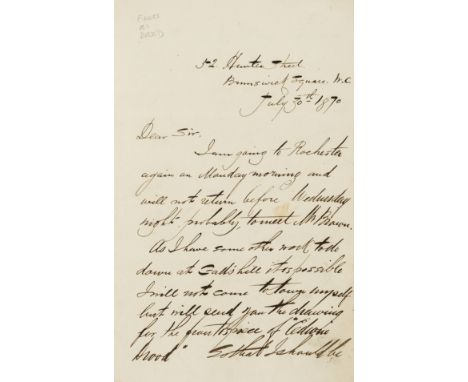 FILDES
52 Hunter Street
Brunswick Square. W.C
July 30th 1870
Dear Sir.
I am going to Rochester
again on Monday morning and
will not return before Wednesday
night probably, to meet Mr Brown.
As I have some other work to do
down at Gadshill it is possible
I will not come to town myself
but will send you the drawing
for the frontispiece of "Edwin
Drood" So that I should be